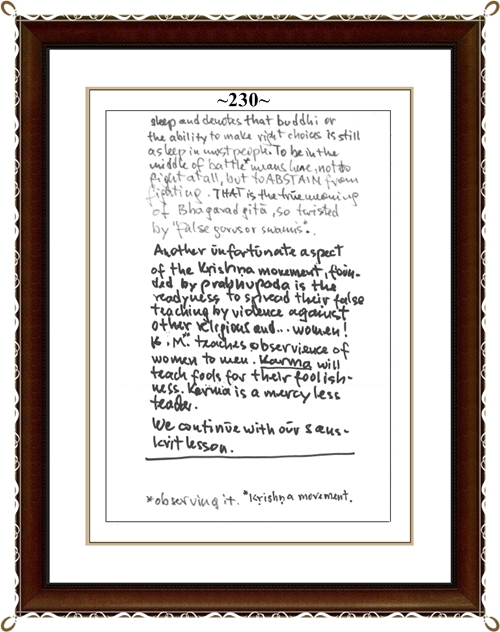 ~230~
sleep and denotes that buddhi or
the ability to make right choices is still
asleep in most people. To be in the
middle of battle* means here, not to
fight at all, but to ABSTAIN from
fighting. THAT is the true meaning
of Bhagavad gitā, so twisted
by "false gurus or swamis".
Another unfortunate aspect
of the Krishna movement, foun-
ded by prabhupada is the
readyness to spread their false
teaching by violence against
other religions and... women!
K.M.* teaches observience of
women to men. Karma will
teach fools for their foolish-
ness. Karma is a mercyless
teacher.
We continue with our sans-
krit lesson.
*observing it. *Krishna movement.